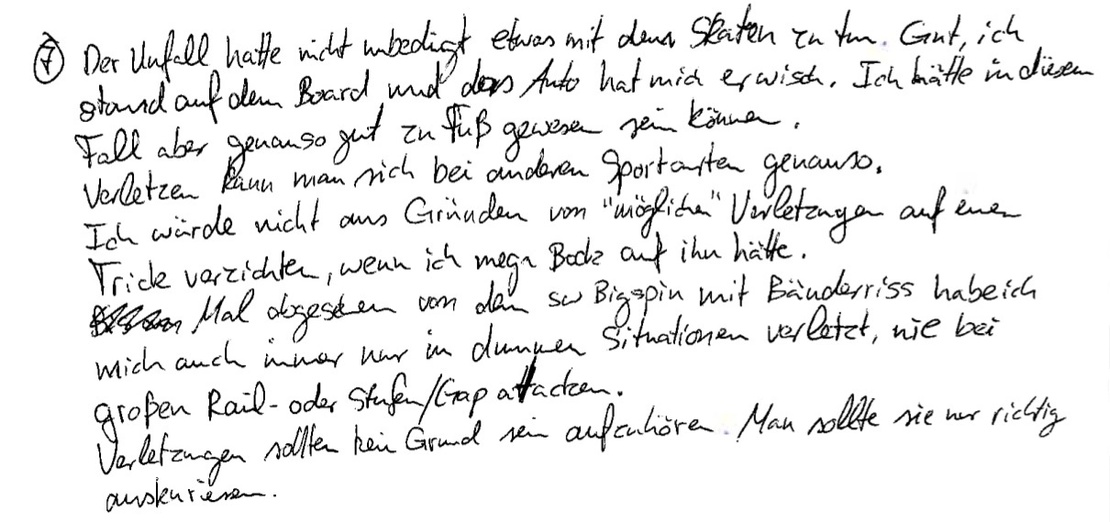 ⑦ Der Unfall hatte nicht unbedingt etwas mit dem Skaten zu tun. Gut, ich
stand auf dem Board und das Auto hat mich erwisch. Ich hätte in diesem
Fall aber genauso gut zu Fuß gewesen sein können.
Verletzen kann man sich bei anderen Sportarten genauso.
Ich würde nicht aus Gründen von "möglichen" Verletzungen auf einen
Trick verzichten, wenn ich mega Bock auf ihn hätte.
Mal abgesehen von dem sw Bigspin mit Bänderriss habe ich
mich auch immer nur in dummen Situationen verletzt, nie bei
großen Rail- oder Stufen/Gap attacken.
Verletzungen sollten kein Grund sein aufzuhören. Man sollte sie nur richtig
auskurieren.